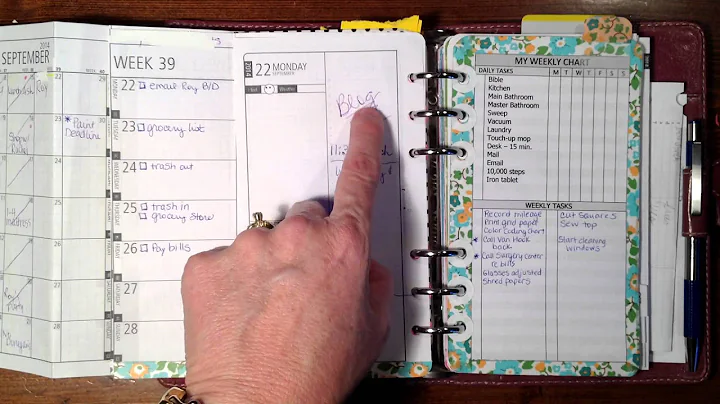 SEPTEMBER 2014
22
23
* Paint
Deadline
24
25
26
27
28
WEEK 39
MONDAY 22 email Roy B/D
TUESDAY 23 grocery list
WEDNESDAY 24 trash out
THURSDAY 25 trash in
grocery store
FRIDAY 26 Pay bills
SATURDAY 27
SUNDAY 28
2014 22 MONDAY
SEPTEMBER
Weather
Blog
MY WEEKLY CHART
DAILY TASKS M T W T F S S
Bible
Kitchen
Main Bathroom
Master Bathroom
Sweep
Vacuum
Laundry
Touch-up mop
Desk – 15 min.
Mail
Email
10,000 steps
Iron tablet
WEEKLY TASKS
Record mileage
Print grid paper
Color Coding Chart
* Call Van Hook
back
* Call Surgery Center
re bills
Glasses adjusted
Shred papers
Cut squares
Sew top
Start cleaning
windows